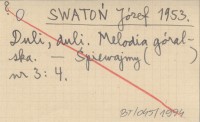 O SWATOŃ Józef 1953.
Duli, duli. Melodia góral-
ska. — Śpiewajmy ( )
nr 3: 4.